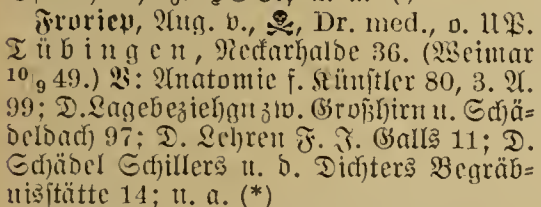 Froriep, Aug. v., ☠, Dr. med., o. UP.
Tübingen, Neckarhalde 36. (Weimar
10/9 49.) V: Anatomie f. Künstler 80, 3. A.
99; D. Lagebeziehgn zw. Großhirn u. Schä-
deldach 97; D. Lehren F. J. Galls 11; D.
Schädel Schillers u. d. Dichters Begräb-
nisstätte 14; u. a. (*)